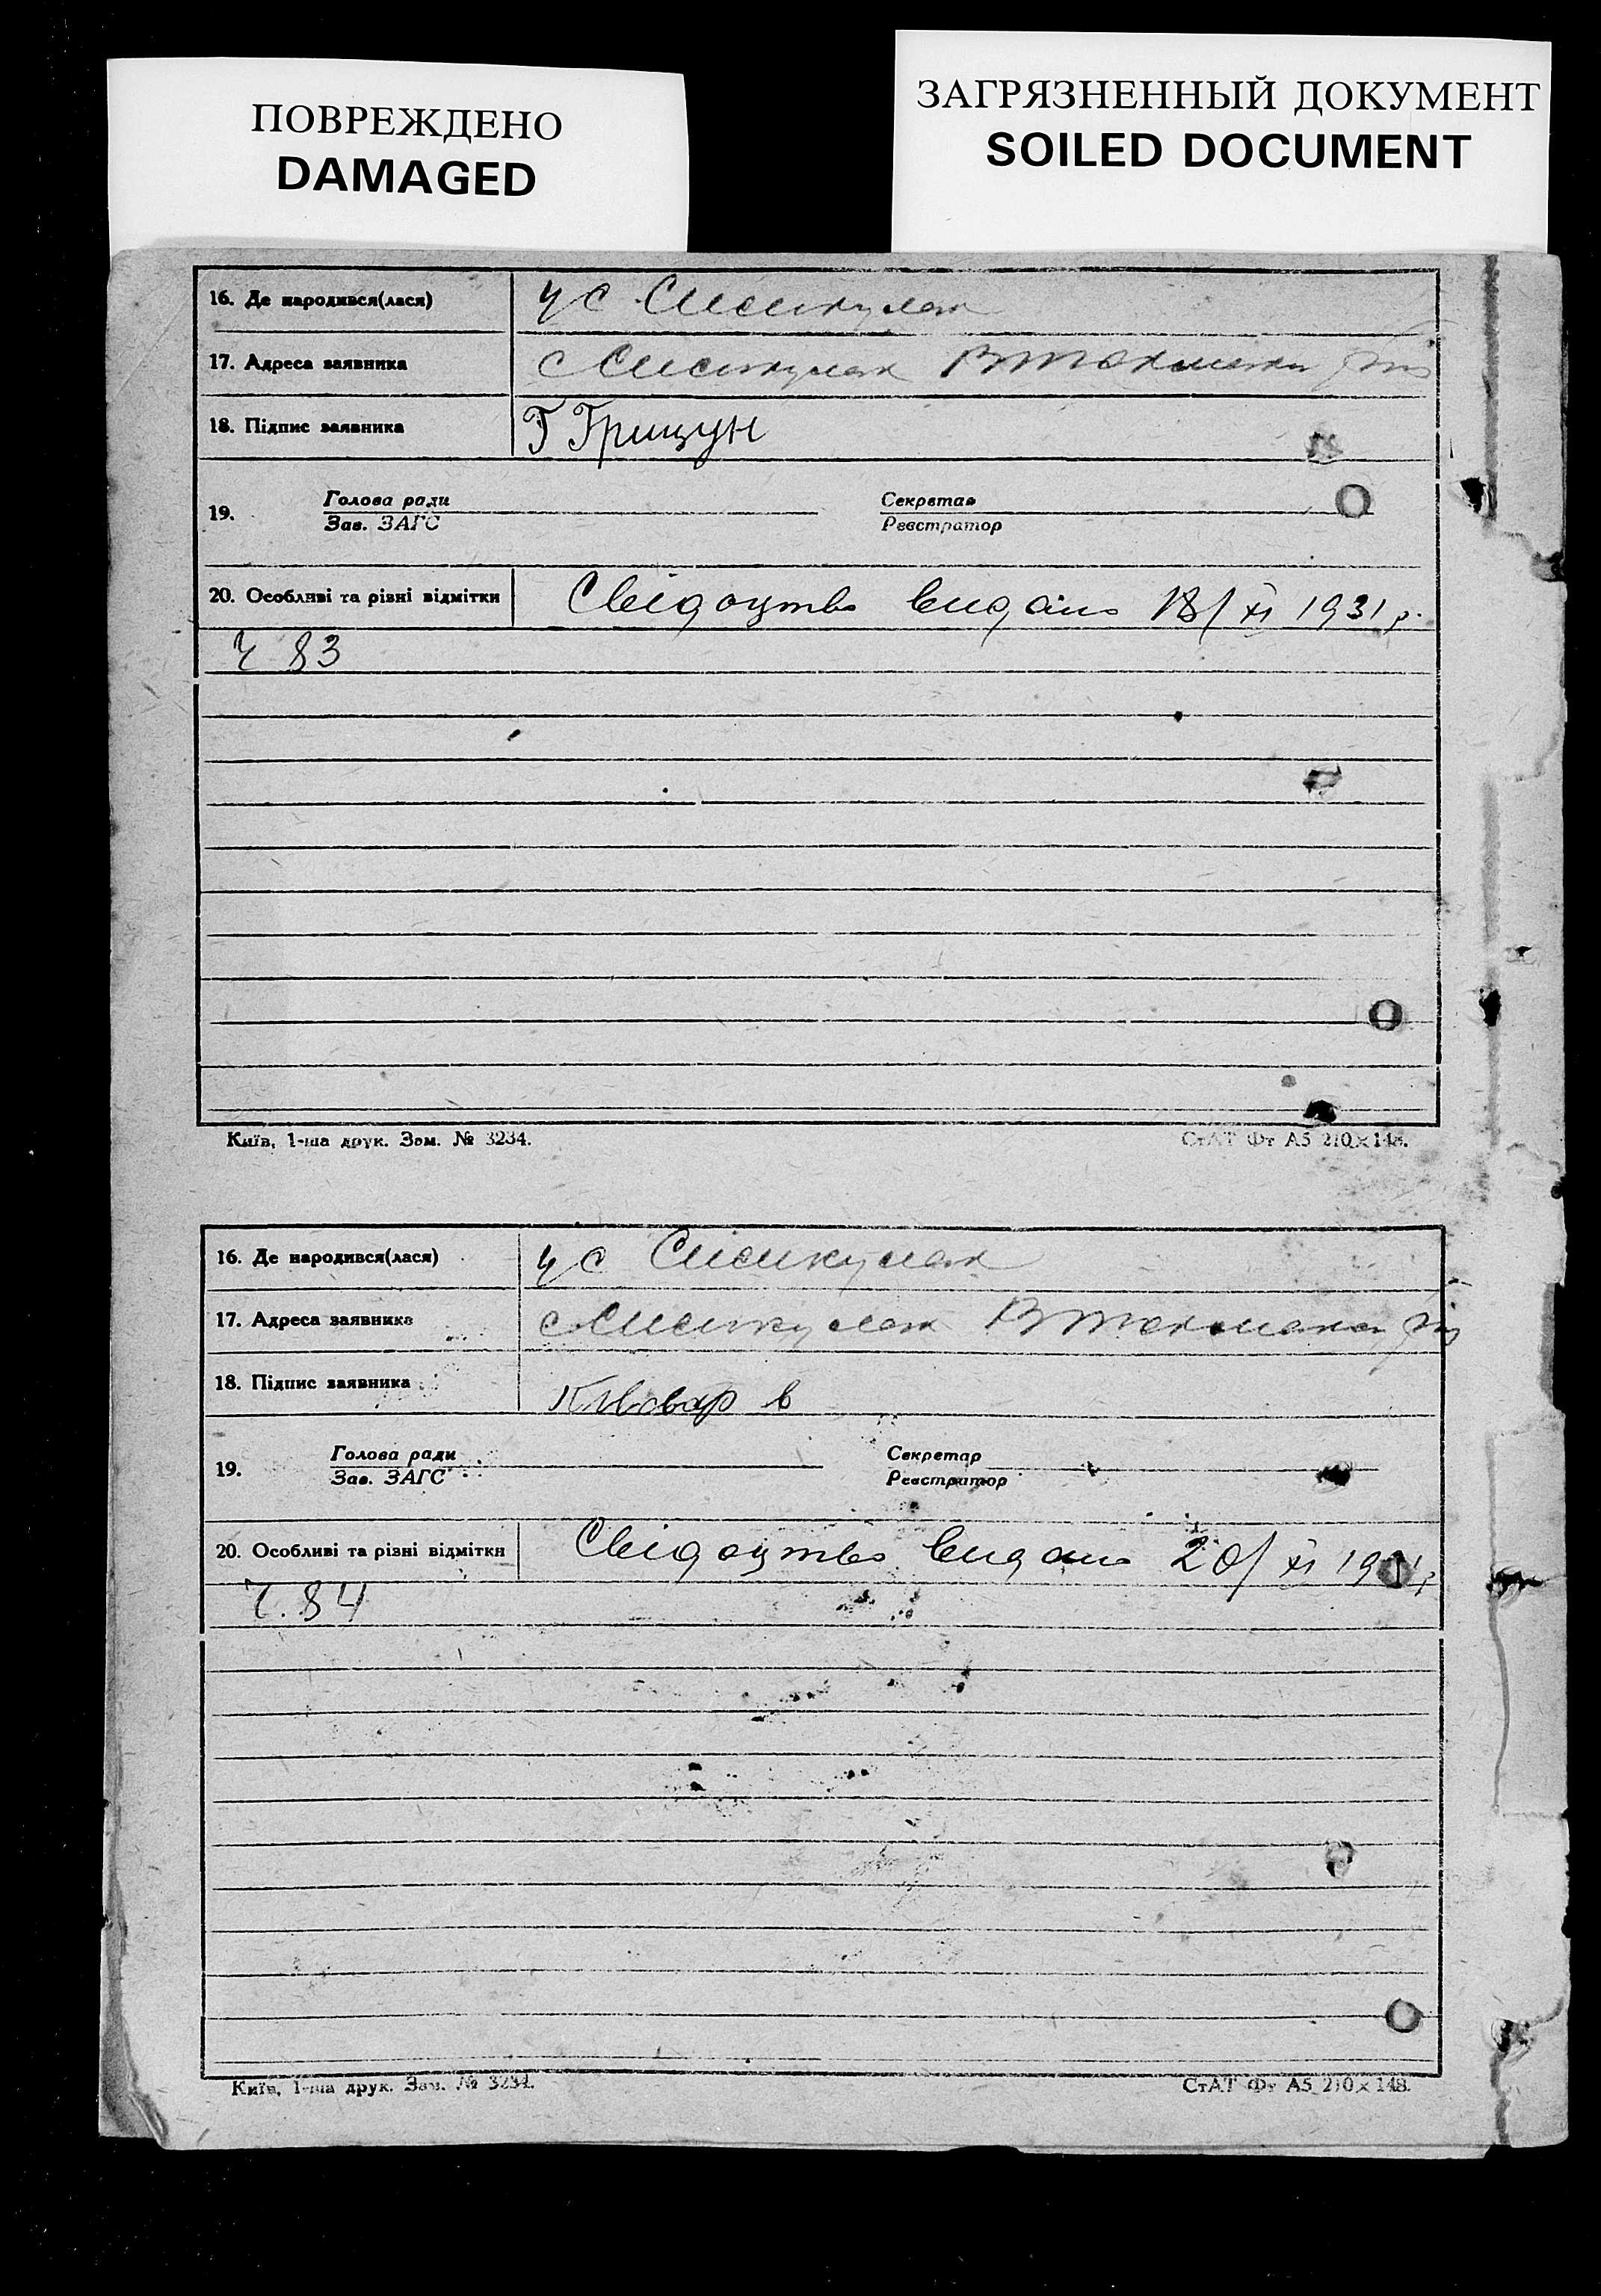 ПОВРЕЖДЕНО
DAMAGED
ЗАГРЯЗНЕННЫЙ ДОКУМЕНТ
SOILED DOCUMENT
16. Де народився(лася) у с
17. Адреса заявника с
18. Підпис заявника Г Грицун
19. Голова ради Секретар
Зав. ЗАГС Реєстратор
20. Особливі та різні відмітки Свідоцтво видано 18/XI 1931 р.
Ч 83
Київ, 1-ша друк. Зам. № 3234. СтАТ Фт А5 210×148.
16. Де народився(лася) у с
17. Адреса заявника с
18. Підпис заявника
19. Голова ради Секретар
Зав. ЗАГС Реєстратор
20. Особливі та різні відмітки Свідоцтво видано 20/XI
Ч. 84
Київ, 1-ша друк. Зам. № 3234. СтАТ Фт А5 210×148.